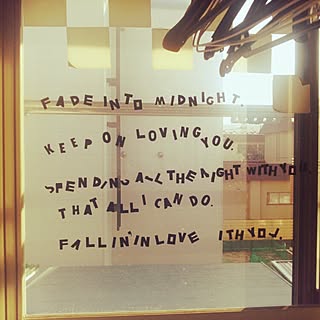 FADE INTO MIDNIGHT.
KEEP ON LOVING YOU.
SPENDING ALL THE NIGHT WITH YOU.
THAT ALL I CAN DO.
FALLIN' IN LOVE ITH YOU.